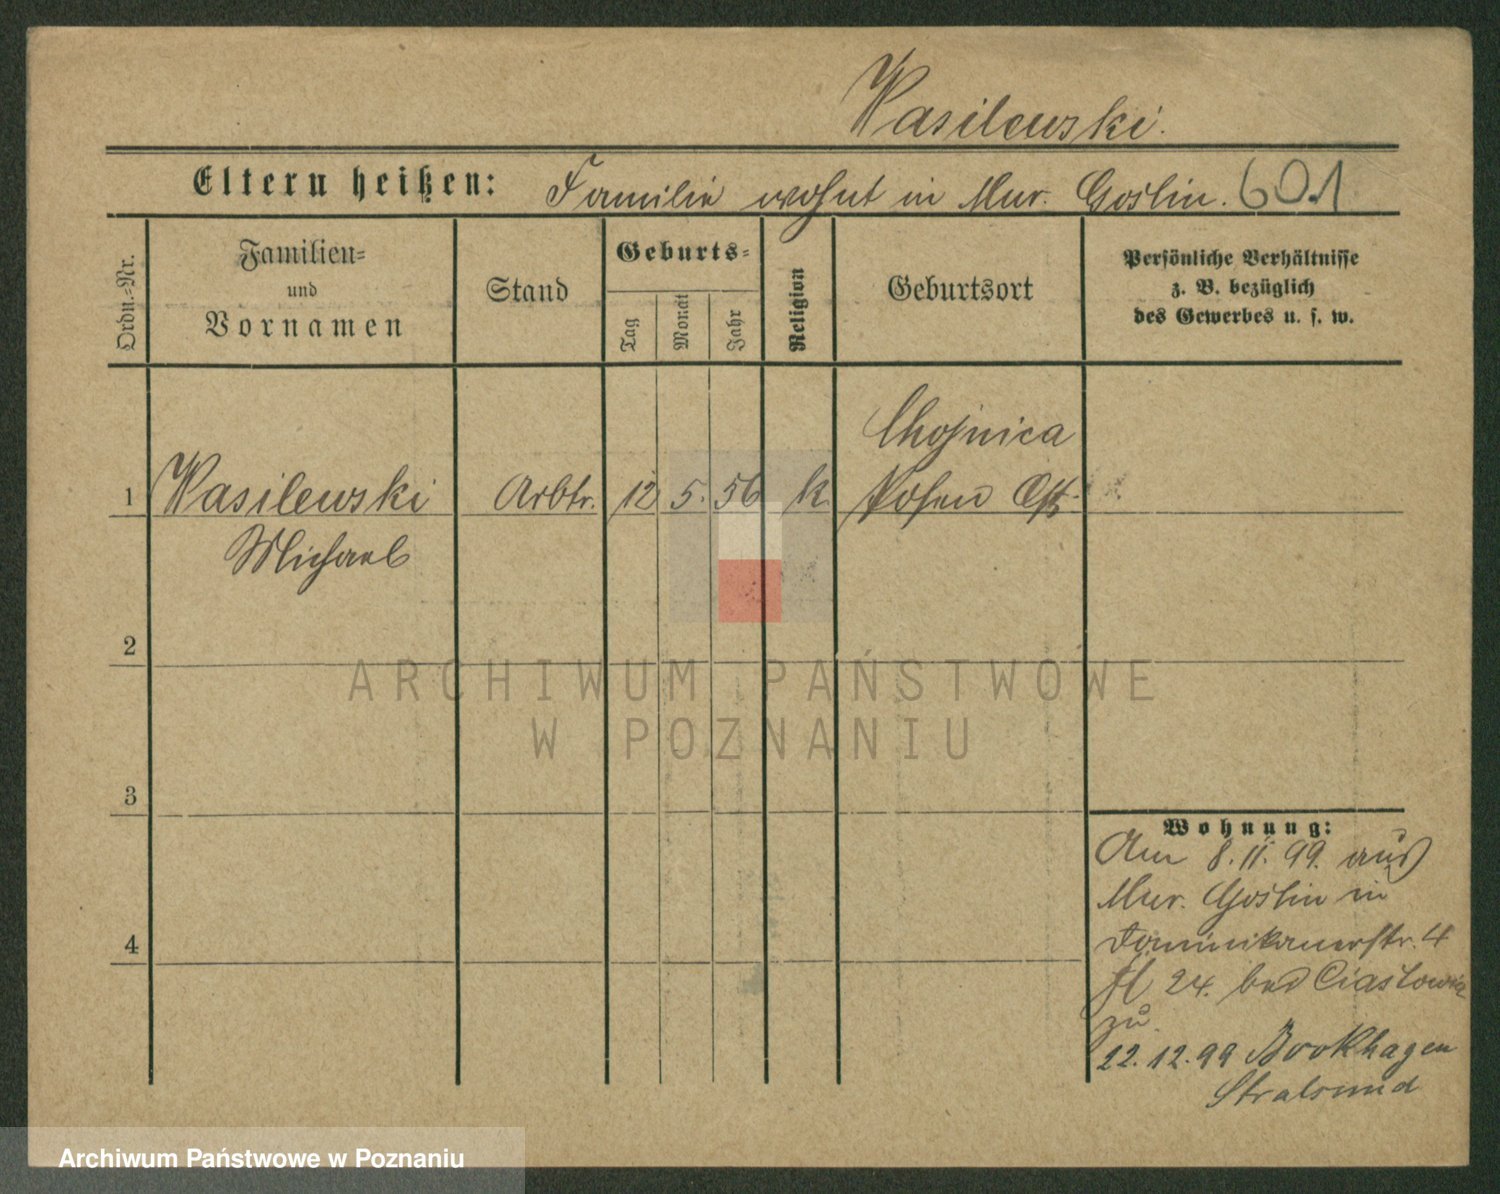 Wasilewski.
Eltern heißen: Familie wohnt in Mur. Goslin. 601
Ordn.-Nr.
Familien-
und
Vornamen
Stand
Geburts-
Tag
Monat
Jahr
Religion
Geburtsort
Persönliche Verhältnisse
z. B. bezüglich
des Gewerbes u. s. w.
Chojnica
1 Wasilewski Arbtr. 12 5. 56 k. Posen Ost.
Michael
2
3
4
Wohnung:
Am 8. 11. 99. aus
Mur. Goslin in
Dominikanerstr. 4
24. bei
zu
22. 12. 99 Bookhagen
Stralsund
ARCHIWUM PAŃSTWOWE
W POZNANIU
Archiwum Państwowe w Poznaniu